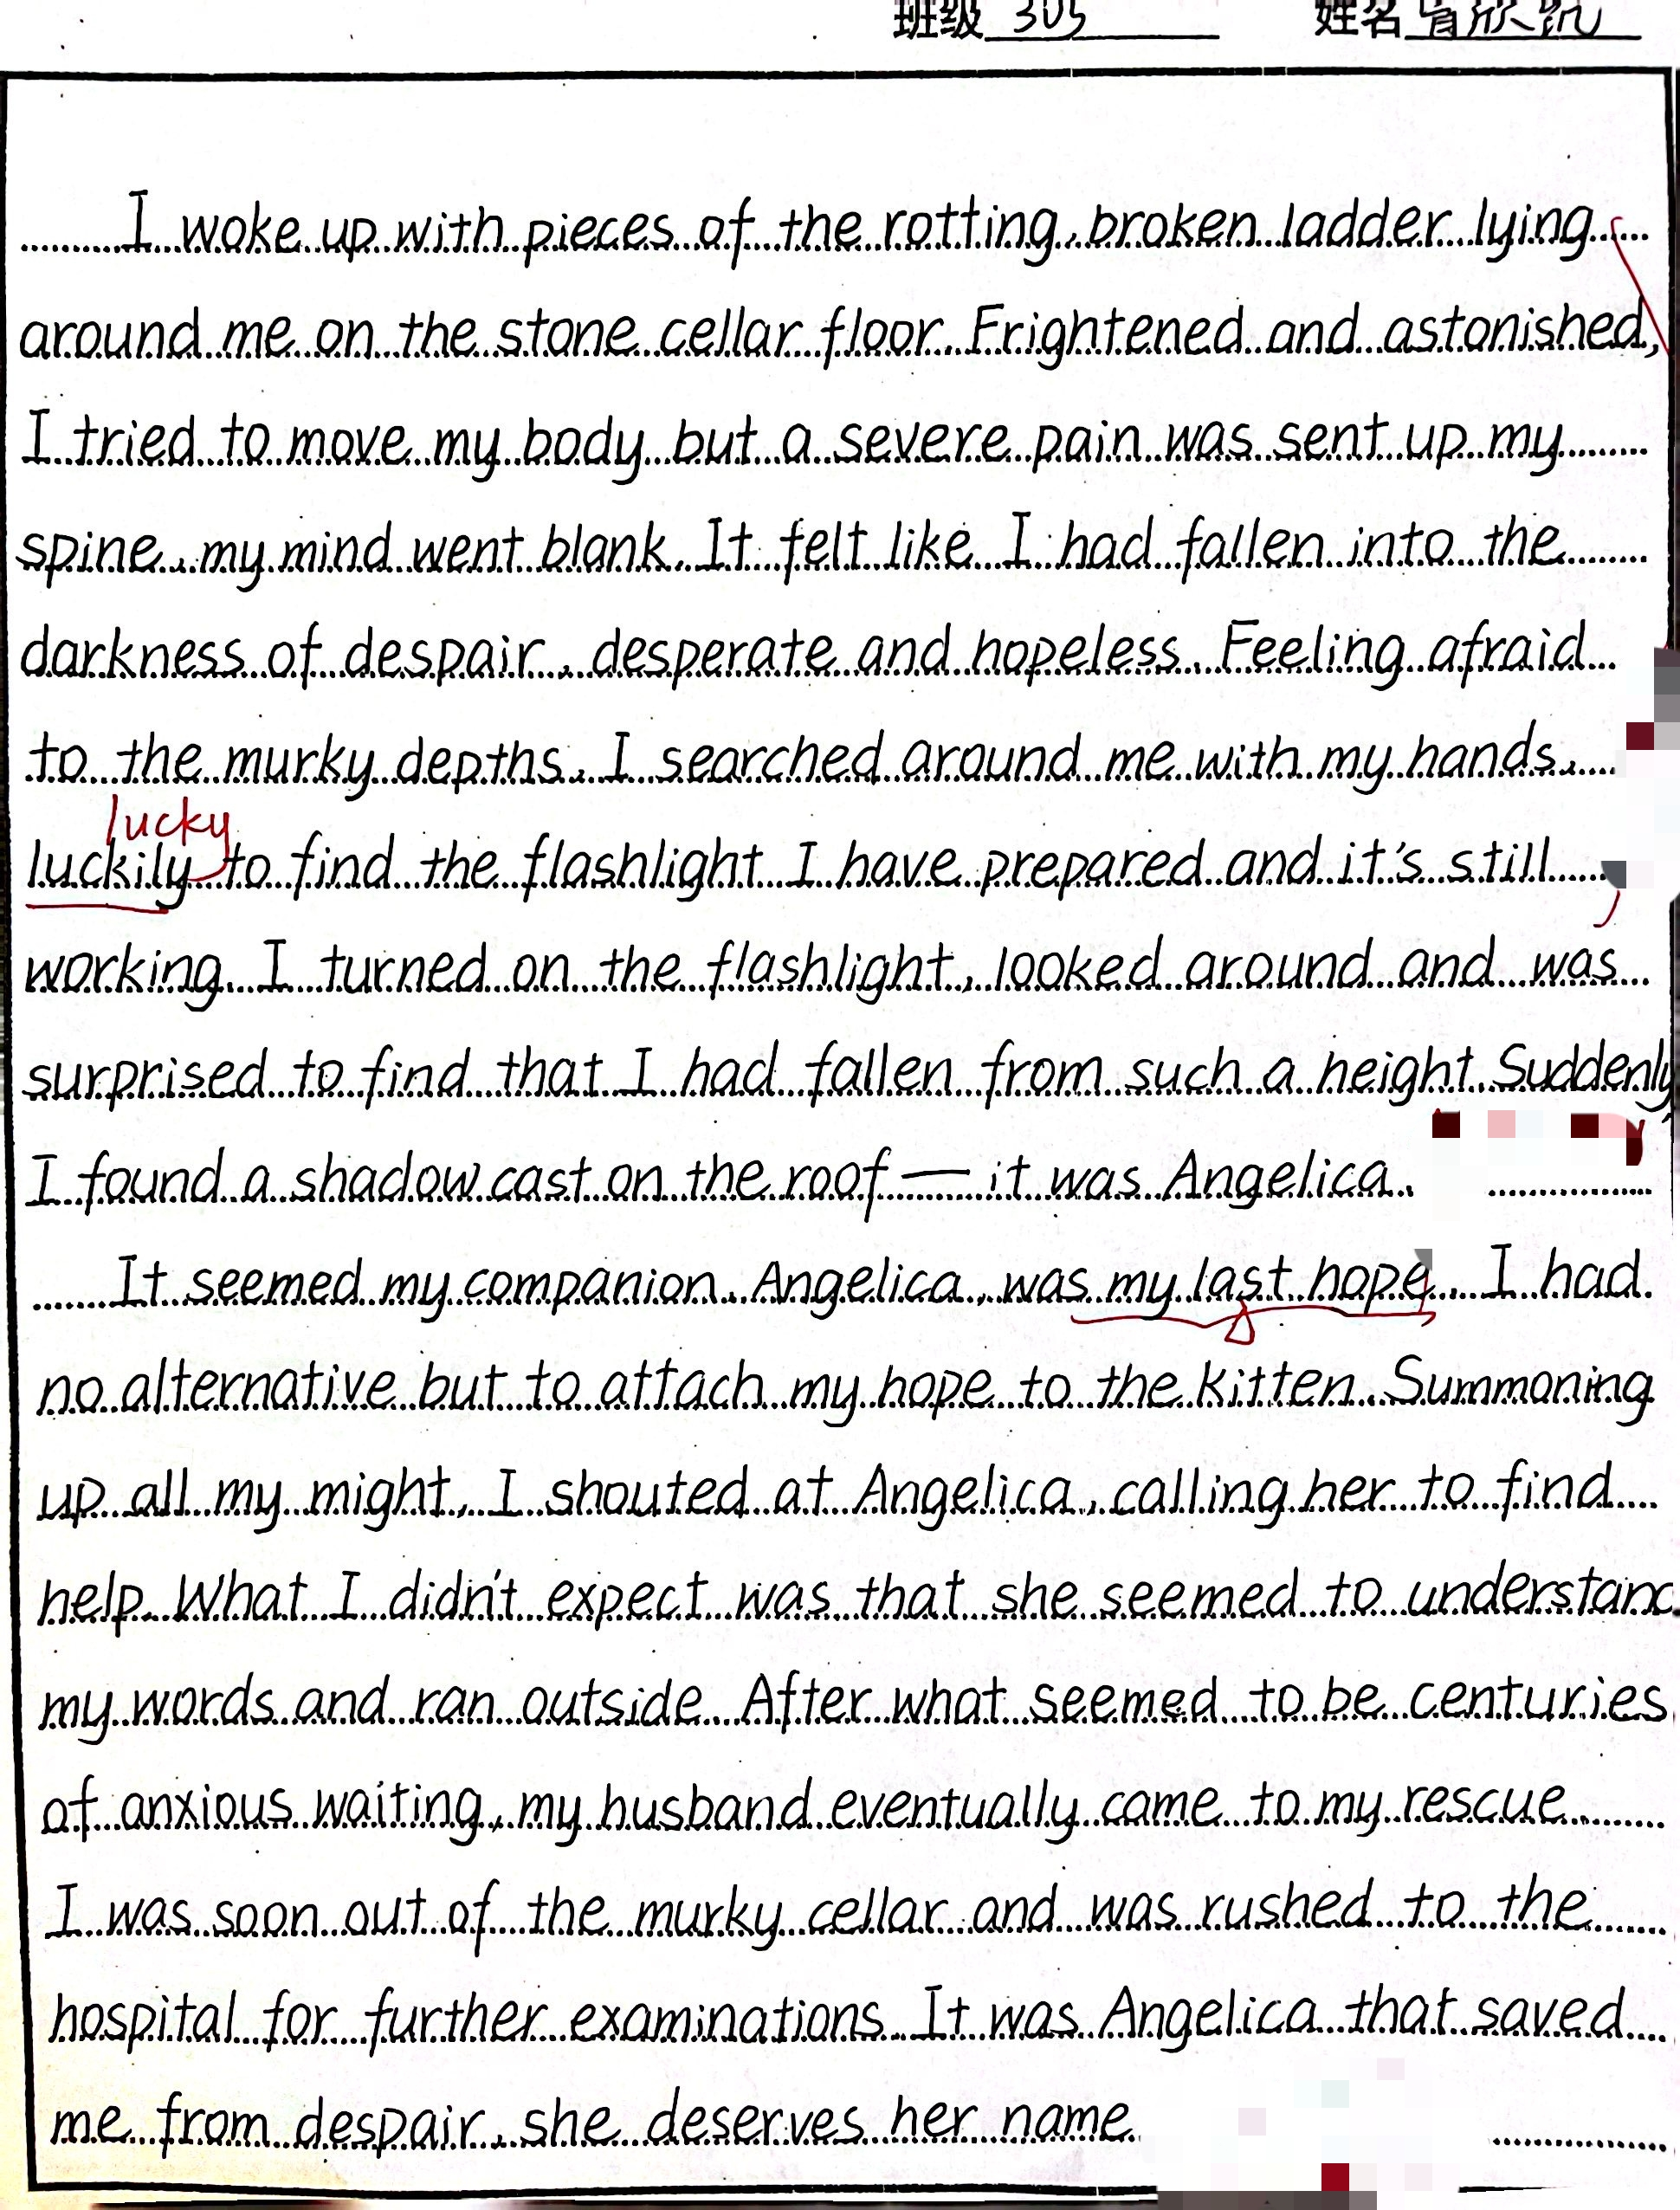 班级 305 姓名 肖欣凯
I woke up with pieces of the rotting, broken ladder lying
around me on the stone cellar floor. Frightened and astonished,
I tried to move my body but a severe pain was sent up my
spine, my mind went blank. It felt like I had fallen into the
darkness of despair, desperate and hopeless. Feeling afraid
to the murky depths, I searched around me with my hands,
lucky
luckily to find the flashlight I have prepared and it's still
working. I turned on the flashlight, looked around and was
surprised to find that I had fallen from such a height. Suddenly,
I found a shadow cast on the roof — it was Angelica.
It seemed my companion, Angelica, was my last hope I had
no alternative but to attach my hope to the kitten. Summoning
up all my might, I shouted at Angelica, calling her to find
help. What I didn't expect was that she seemed to understand
my words and ran outside. After what seemed to be centuries
of anxious waiting, my husband eventually came to my rescue.
I was soon out of the murky cellar and was rushed to the
hospital for further examinations. It was Angelica that saved
me from despair, she deserves her name.